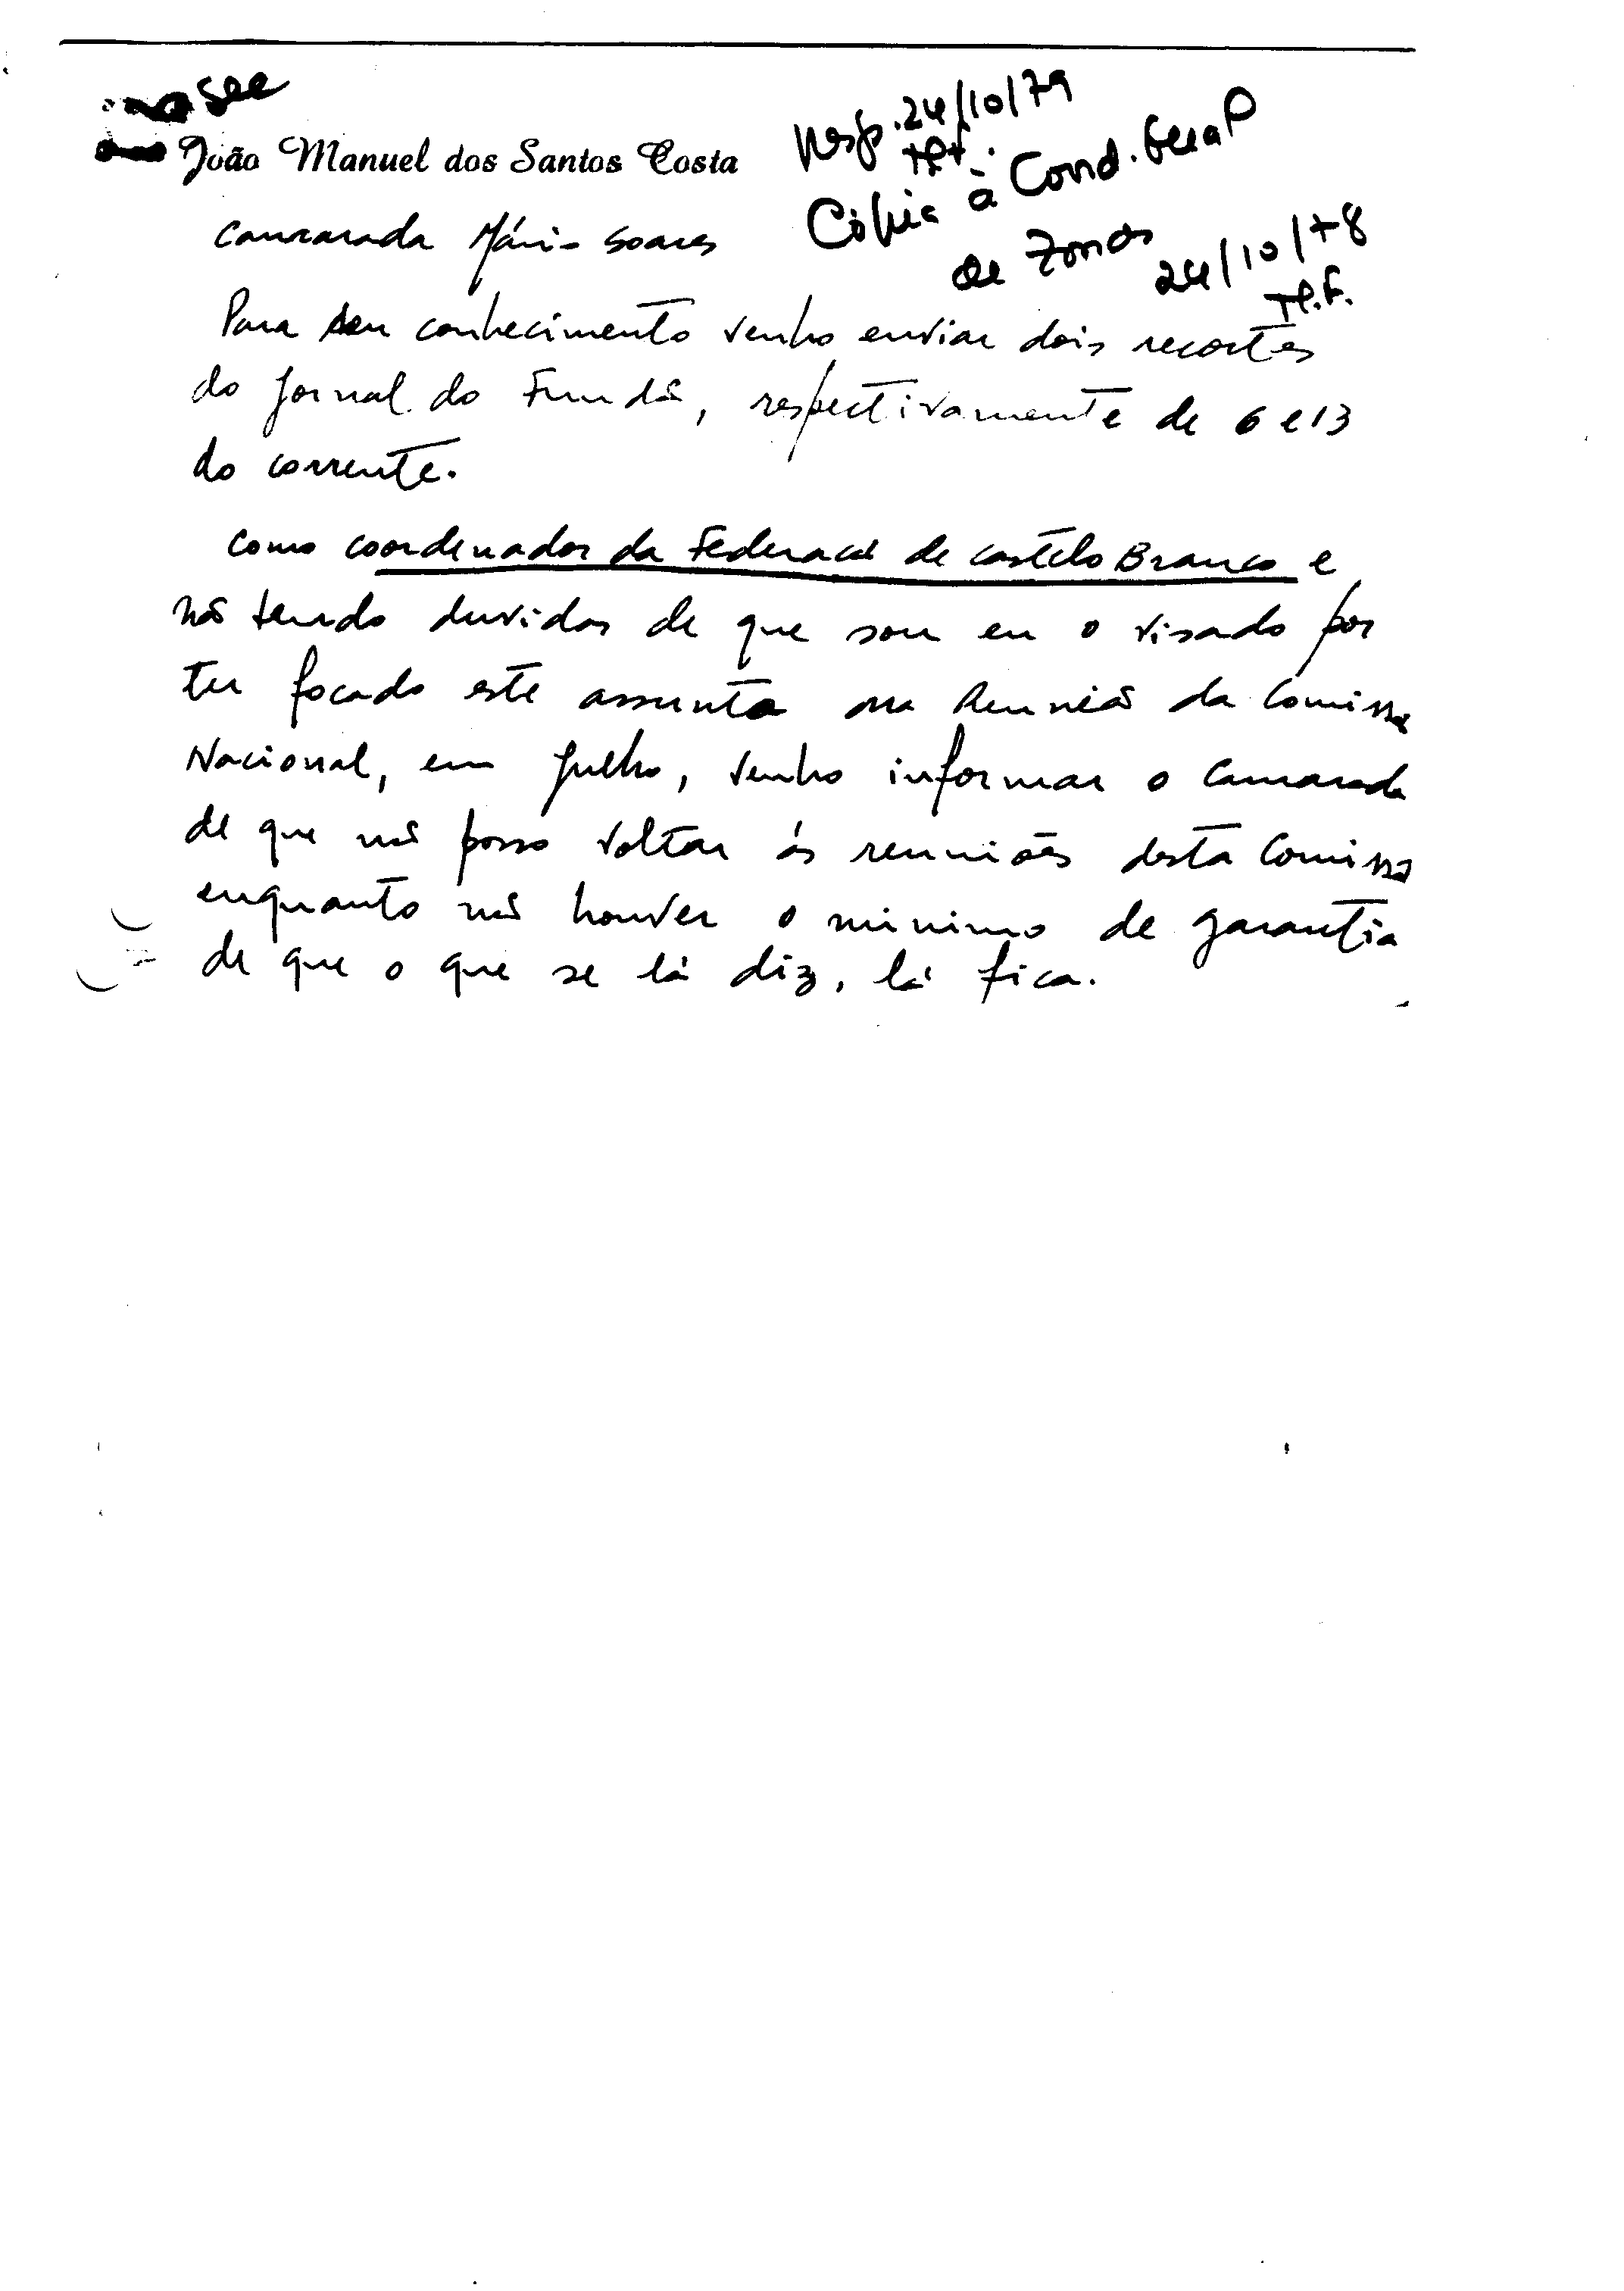 See
João Manuel dos Santos Costa
Resp. 24/10/79
Cópia à Cood. Geral
de Zonas
24/10/78
camarada Mário Soares
Para seu conhecimento venho enviar dois recortes
do Jornal do Fundão, respectivamente de 6 e 13
do corrente.
Como coordenador da Federacão de Castelo Branco e
não tendo duvidas de que sou eu o visado por
ter focado este assunto na Reunião da Comissão
Nacional, em Julho, venho informar o Camarada
de que não posso voltar ás reuniões desta Comissão
enquanto não houver o minimo de garantia
de que o que se lá diz, lá fica.